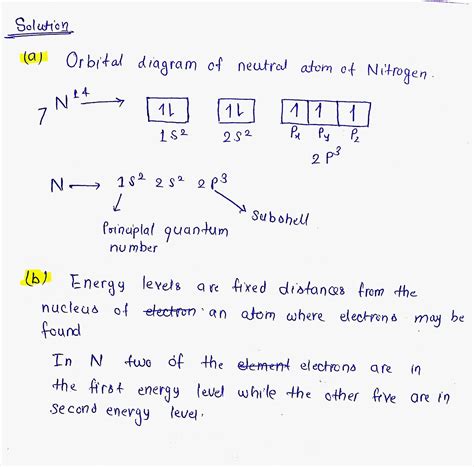 Solution
(a) Orbital diagram of neutral atom of Nitrogen.
7 N 14 → 1l 1l 1 1 1
1s² 2s² Px Py Pz
2p³
N → 1s² 2s² 2p³
Subshell
Priniciplal quantum
number
(b) Energy levels are fixed distances from the
nucleus of electron an atom where electrons may be
found
In N two of the element electrons are in
the first energy level while the other five are in
second energy level.